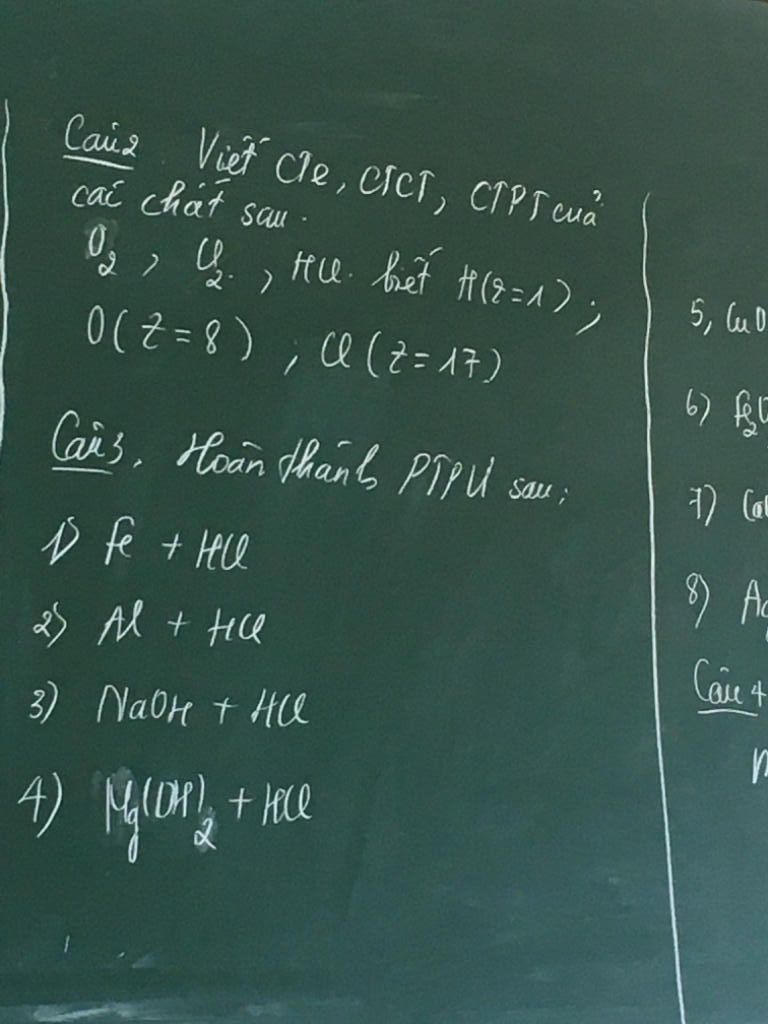 Câu 2 Viết CTe, CTCT, CTPT của
các chất sau.
O2, Cl2, HCl. biết H(z=1);
O(Z=8); Cl(Z=17)
Câu 3. Hoàn thành PTPƯ sau:
1) Fe + HCl
2) Al + HCl
3) NaOH + HCl
4) Mg(OH)2 + HCl
5, CuO
6) Fe2O
7)
8) Ag
Câu 4